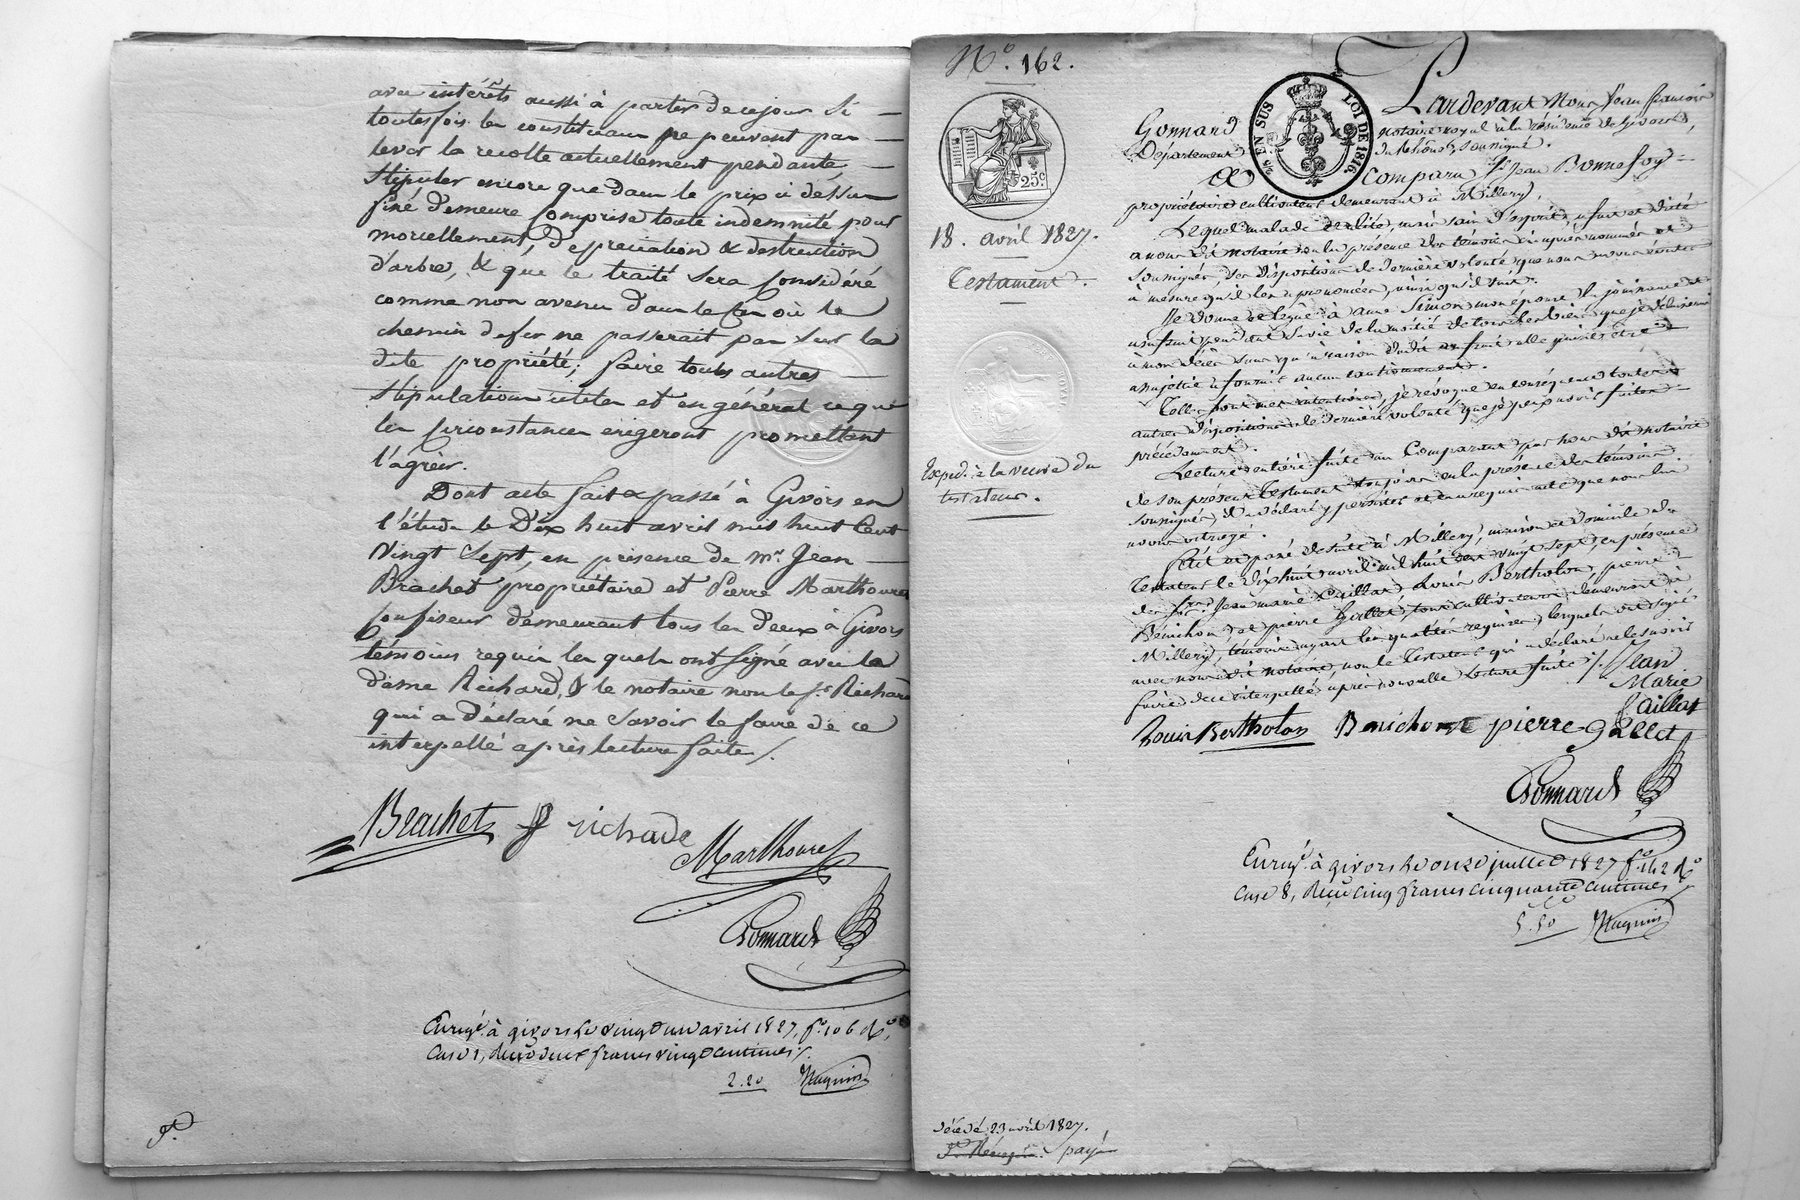 avec intérêts aussi à partir de ce jour si
toutesfois les constituans ne peuvent pas
lever la récolte actuellement pendante,
stipuler encore que dans le prix ci dessus
fixé demeure comprise toute indemnité pour
morcellement, dépréciation & destruction
d'arbre, & que le traité sera considéré
comme non avenu dans le cas où le
chemin de fer ne passerait pas sur la
dite propriété; faire toutes autres
stipulations utiles et en général ce que
les circonstances exigeront promettant
l'agréer.
Dont acte fait & passé à Givors en
l'étude le Dix huit avril mil huit cent
vingt sept, en présence de mr. Jean
Brachet propriétaire et Pierre Marthouret
confiseur demeurant tous les deux à Givors
témoins requis les quels ont signé avec la
dame Richard, & le notaire non le sr Richard
qui a déclaré ne savoir le faire de ce
interpellé après lecture faite /.
Brachet f richade
Marthouret
Gonnard
Enregé. à givors le vingt un avril 1827, fo. 106 Ro,
Case 1, Reçu deux francs vingt centimes /.
2.20 Magnin
No. 162.
25c
18. avril 1827.
Testament.
Expéd. à la veuve du
testateur.
décédé 23 avril 1827.
payé
EN SUS LOI DE 1816
Pardevant Nous Jean françois
Gonnard notaire royal à la résidence de Givors,
Département du Rhône, soussigné.
a Comparu Sr. Jean Bonnefoy
propriétaire cultivateur demeurant à Millery,
Lequel malade de , mais sain d'esprit, a fait et dicté
à nous dit notaire en la présence des témoins ci après nommés et
soussignés, ses dispositions de dernière volonté que nous avons écrites
à mesure qu'il les a prononcées, ainsi qu'il suit.
Je donne et lègue à anne Simon mon épouse la jouissance et
usufruit pendant sa vie de la moitié de tous les biens que je délaisserai
à mon décès sans qu'à raison dudit usufruit elle puisse être
assujettie à fournir aucun cautionnement.
Telles sont mes intentions, je révoque en conséquence toutes
autres dispositions de dernière volonté que je peux avoir faites
précédemment.
Lecture entière faite au Comparant par nous dit notaire
de son présent Testament toujours en la présence des témoins
soussignés, il a déclaré y persister et en a requis acte que nous lui
avons octroyé.
Fait et passé de suite à Millery, maison et domicile du
Testateur le dix huit avril mil huit cent vingt sept, en présence
des Srs. Jean marie Paillat, Louis Bertholon, pierre
Bénichou et pierre Gallet, tous cultivateurs demeurant à
Millery, témoins ayant les qualités requises, lesquels ont signé
avec nous dit notaire, non le Testateur qui a déclaré ne le savoir
faire de ce interpellé, après nouvelle lecture faite /.
Jean
Marie
Paillat
Louis Bertholon Benichou pierre gallet
Gonnard
Enregé. à givors le onze juillet 1827 fo. 142 Ro
Case 8, Reçu cinq francs cinquante centimes
5.50 Magnin